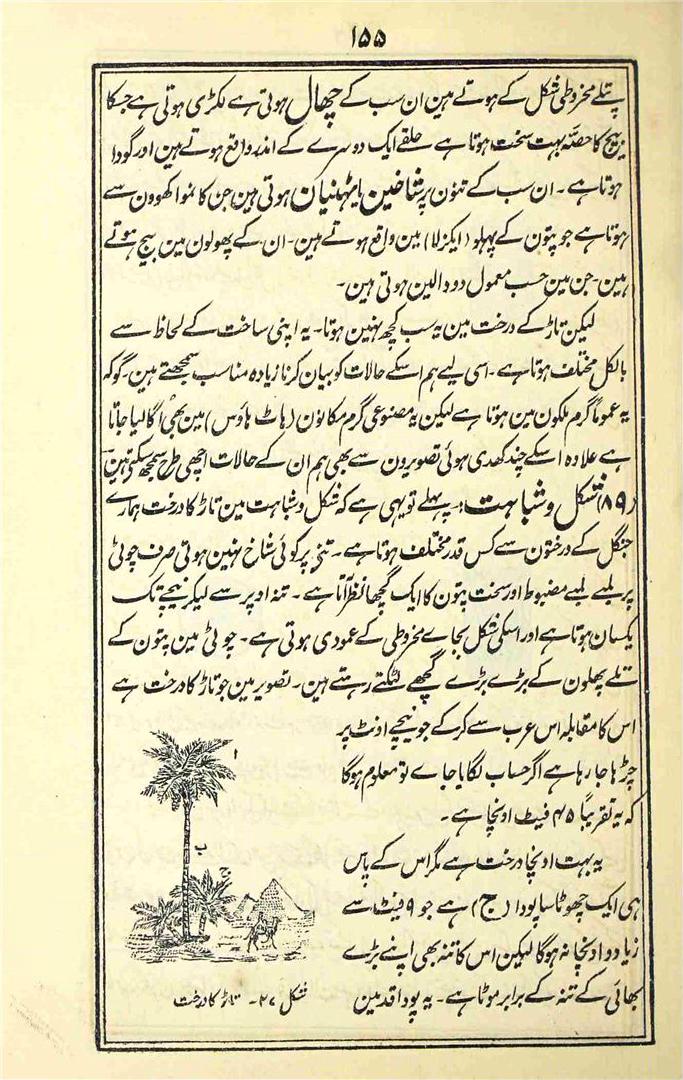 ۱۵۵
پتلے مخروطی شکل کے ہوتے ہین ان سب کے چھال ہوتی ہے لکڑی ہوتی ہے جسکا
بیچ کا حصّہ بہت سخت ہوتا ہے حلقے ایک دوسرے کے اندر واقع ہوتے ہین اور گودا
ہوتا ہے۔ ان سب کے تنون پر شاخین یا ٹہنیان ہوتی ہین جن کا نموا کھوون سے
ہوتا ہے جو پتون کے پہلو (ایکزلا) مین واقع ہوتے ہین۔ ان کے پھولون مین بیج ہوتے
ہین۔ جن مین حسب معمول دو دالین ہوتی ہین۔
لیکن تاڑ کے درخت مین یہ سب کچھ نہین ہوتا۔ یہ اپنی ساخت کے لحاظ سے
بالکل مختلف ہوتا ہے۔ اسی لیے ہم اسکے حالات کو بیان کرنا زیادہ مناسب سمجھتے ہین۔ گو کہ
یہ عموماً گرم ملکون مین ہوتا ہے لیکن یہ مصنوعی گرم مکانون (ہاٹ ہاؤس) مین بھی اُگا لیا جاتا
ہے علاوہ اسکے چند کھدی ہوئی تصویرون سے بھی ہم ان کے حالات اچھی طرح سمجھ سکتے ہین
(۸۹) شکل و شباہت :۔ پہلے تو یہی ہے کہ شکل و شباہت مین تاڑ کا درخت ہمارے
جنگل کے درختون سے کس قدر مختلف ہوتا ہے۔ تنے پر کوئی شاخ نہین ہوتی صرف چوٹی
پر لمبے لمبے مضبوط اور سخت پتون کا ایک گچھا نظر آتا ہے۔ تنہ اوپر سے لیکر نیچے تک
یکسان ہوتا ہے اور اسکی شکل بجاے مخروطی کے عمودی ہوتی ہے۔ چوٹی مین پتون کے
تلے پھلون کے بڑے بڑے گچھے لٹکتے رہتے ہین۔ تصویر مین جو تاڑ کا درخت ہے
اس کا مقابلہ اس عرب سے کر کے جو نیچے اونٹ پر
چڑھا جا رہا ہے اگر حساب لگایا جاے تو معلوم ہوگا
کہ یہ تقریباً ۴۵ فیٹ اونچا ہے۔
یہ بہت اونچا درخت ہے مگر اس کے پاس
ہی ایک چھوٹا سا پودا (ج) ہے جو ۹ فیٹ سے
زیادہ اونچا نہ ہوگا لیکن اس کا تنہ بھی اپنے بڑے
بھائی کے تنہ کے برابر موٹا ہے۔ یہ پودا قد مین
ا
ب
ج
شکل ۲۷۔ تاڑ کا درخت